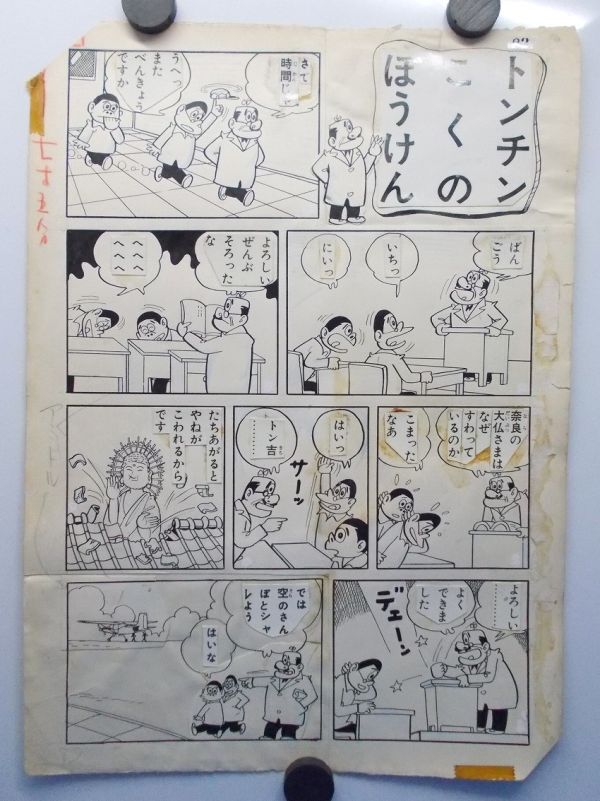 トンチン
こくの
ほうけん
さて
時間じゃ
うへっ
また
べんきょう
ですか
ばん
ごう
いちっ
にいっ
よろしい
ぜんぶ
そろった
な
へへへ
へへへ
奈良の
大仏さまは
なぜ
すわって
いるのか
こまった
なあ
はいっ
トン吉
………
サーッ
たちあがると
やねが
こわれるから
です
よろしい
………
よく
できま
した
デェーン
では
空のさん
ぽとシャ
レよう
はいな